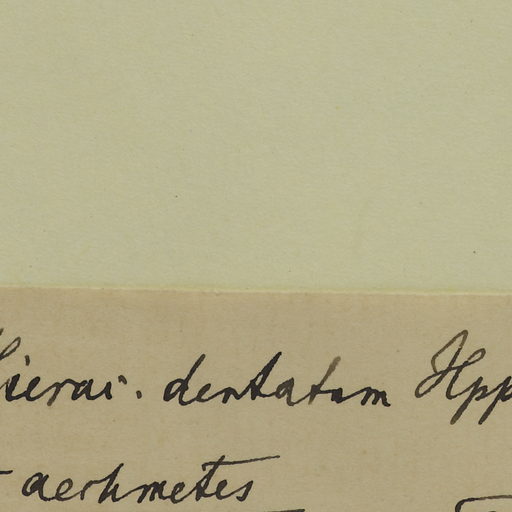 Hierac. dentatum Hpp
aechmetes